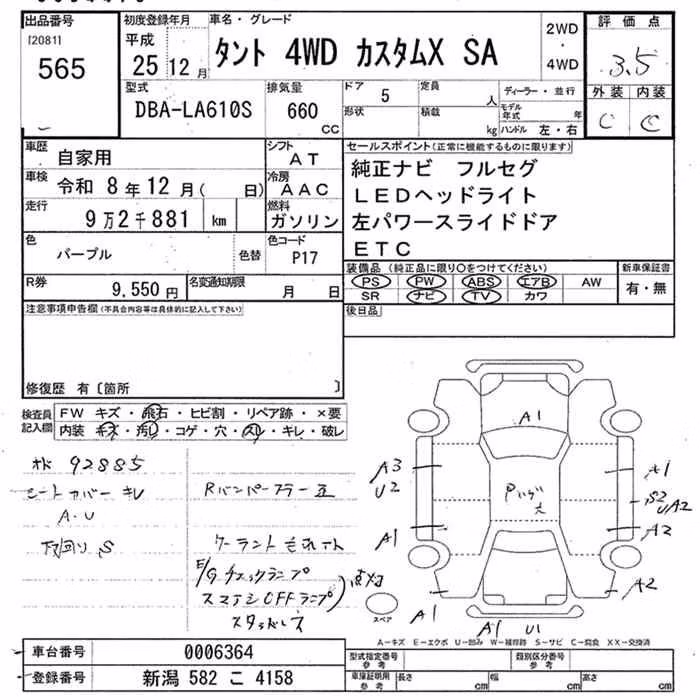 出品番号
[2081]
565
初度登録年月
平成
25 12 月
車名・グレード
タント 4WD カスタムX SA
2WD
・
4WD
評価点
3.5
外装 内装
C C
型式
DBA-LA610S
排気量
660
CC
ドア 5
形状
定員
人
積載
kg
ディーラー・並行
モデル年式 年
ハンドル 左・右
車歴
自家用
シフト
AT
車検
令和 8年12月( 日)
冷房
AAC
走行
9万2千881 km
燃料
ガソリン
色
パープル
色替
色コード
P17
R券
9,550 円
名変通知期限
月 日
セールスポイント(正常に機能するものに限ります)
純正ナビ フルセグ
LEDヘッドライト
左パワースライドドア
ETC
装備品(純正品に限り○をつけてください)
PS PW ABS エアB AW
SR ナビ TV カワ
新車保証書
有・無
後日品
注意事項申告欄(不具合内容等は具体的に記入して下さい)
修復歴 有〔箇所 〕
検査員記入欄
FW キズ・飛石・ヒビ割・リペア跡・×要
内装 キズ・汚レ・コゲ・穴・スレ・キレ・破レ
92885
シートカバー キレ
A・U
下回り S
Rバンパーフラー
クーラント
E/Gチェックランプ
スマアシOFFランプ
スタッドレス
A1
A3
U2
A1
A1
S2
UA2
A2
A1
A2
A1
U1
スペア
A-キズ E-エクボ U-凹み W-補修跡 S-サビ C-腐食 XX-交換済
車台番号
0006364
登録番号
新潟 582 こ 4158
型式指定番号
参考
類別区分番号
参考
車庫証明用
参考
長さ cm
幅 cm
高さ cm